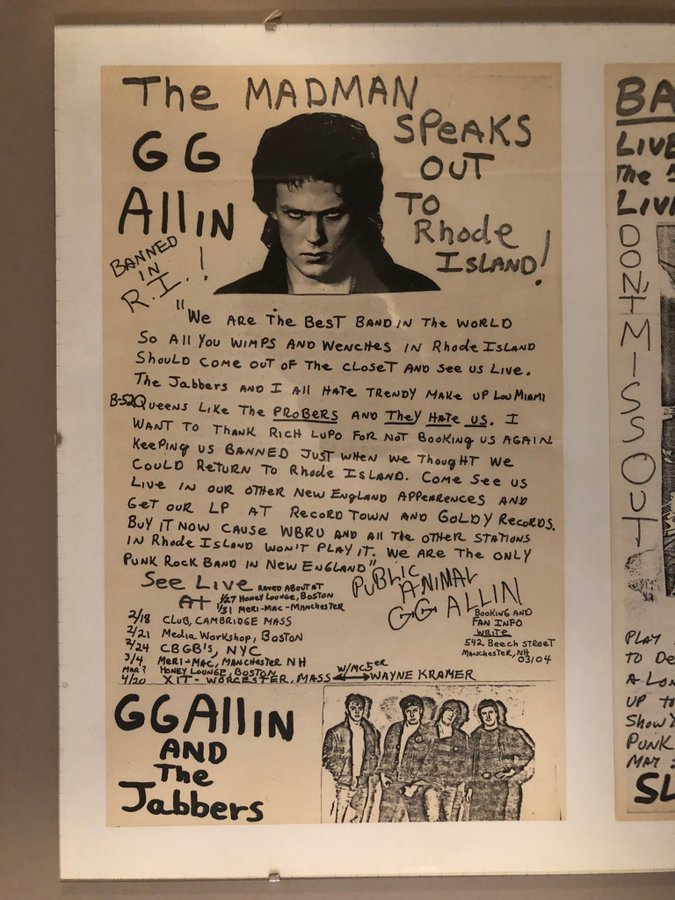 The MADMAN
GG
Allin
SPEAKS
OUT
TO
Rhode
ISLAND!
BANNED
IN
R.I.!
"We Are The Best Band in The World
So All You Wimps And Wenches in Rhode Island
Should come out of the closet and see us live.
The Jabbers and I all hate trendy make up Lou Miami
B-52 Queens like the PROBERS and They Hate us. I
want to thank Rich Lupo for not booking us again.
Keeping us banned just when we thought we
could return to Rhode Island. Come see us
live in our other New England appearences and
get our LP at Record Town and Goldy Records.
Buy it now cause WBRU and all the other stations
in Rhode Island won't play it. We are the only
punk rock band in New England"
See Live
At
RAVED ABOUT AT
1/27 Honey Lounge, Boston
1/31 Meri-Mac-Manchester
2/18 Club, Cambridge Mass
2/21 Media Workshop, Boston
2/24 CBGB's, NYC
3/4 Meri-Mac, Manchester NH
Mar? Honey Lounge, Boston
4/20 XIT - Worcester, Mass
W/MC5er
Wayne Kramer
PUBLIC
ANIMAL
GG ALLIN
Booking and
Fan Info
Write
542 Beech Street
Manchester, NH
03104
GG Allin
AND
The
Jabbers
BA
LIVE
The
LIV
DON'T MISS OUT
PLAY
TO DE
A LON
UP TO
SHOW
PUNK
MAY
SL